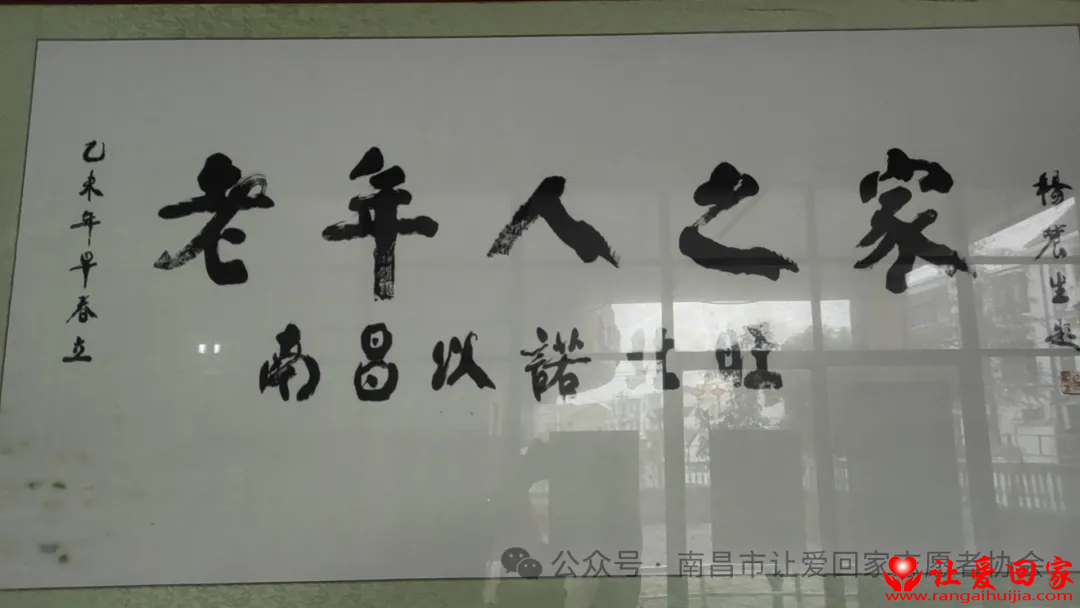 老年人之家
南昌以诺北旺
乙未年早春立
杨农生题
公众号·南昌市让爱回家志愿者协会
让爱回家
www.rangaihuijia.com